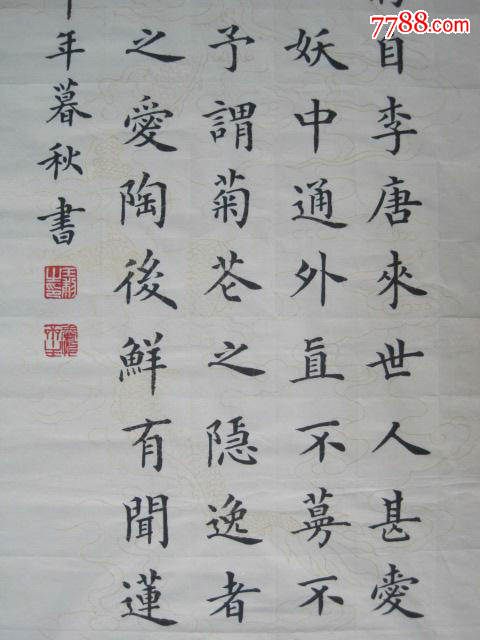 自李唐來世人甚愛
妖中通外直不蔓不
予謂菊花之隱逸者
之愛陶後鮮有聞蓮
年暮秋書
7788.com
中国收藏热线